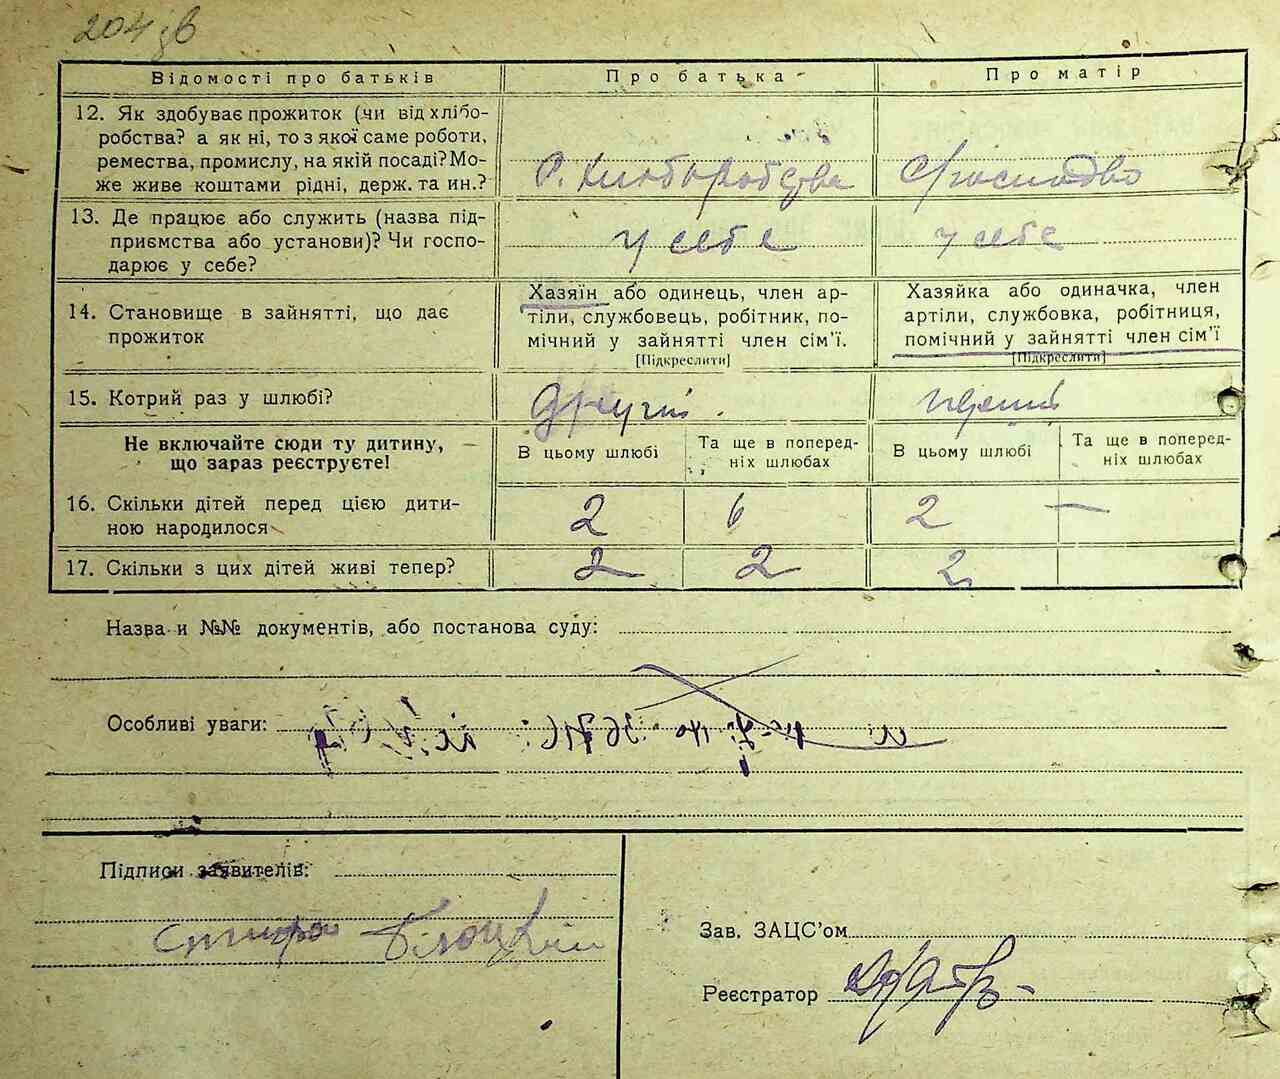 204 зв
Відомості про батьків
Про батька
Про матір
12. Як здобуває прожиток (чи від хлібо-
робства? а як ні, то з якої саме роботи,
ремества, промислу, на якій посаді? Мо-
же живе коштами рідні, держ. та ин.?
Р. Хліборобства
13. Де працює або служить (назва під-
приємства або установи)? Чи госпо-
дарює у себе?
у себе
у себе
14. Становище в зайнятті, що дає
прожиток
Хазяїн або одинець, член ар-
тіли, службовець, робітник, по-
мічний у зайнятті член сім'ї.
[Підкреслити]
Хазяйка або одиначка, член
артіли, службовка, робітниця,
помічний у зайнятті член сім'ї
[Підкреслити]
15. Котрий раз у шлюбі?
Другий.
перший
Не включайте сюди ту дитину,
що зараз реєструєте!
В цьому шлюбі
Та ще в поперед-
ніх шлюбах
В цьому шлюбі
Та ще в поперед-
ніх шлюбах
16. Скільки дітей перед цією дити-
ною народилося
2
6
2
—
17. Скільки з цих дітей живі тепер?
2
2
2
Назва и №№ документів, або постанова суду:
Особливі уваги:
Підписи заявителів:
Білоцкий
Зав. ЗАЦС'ом
Реєстратор